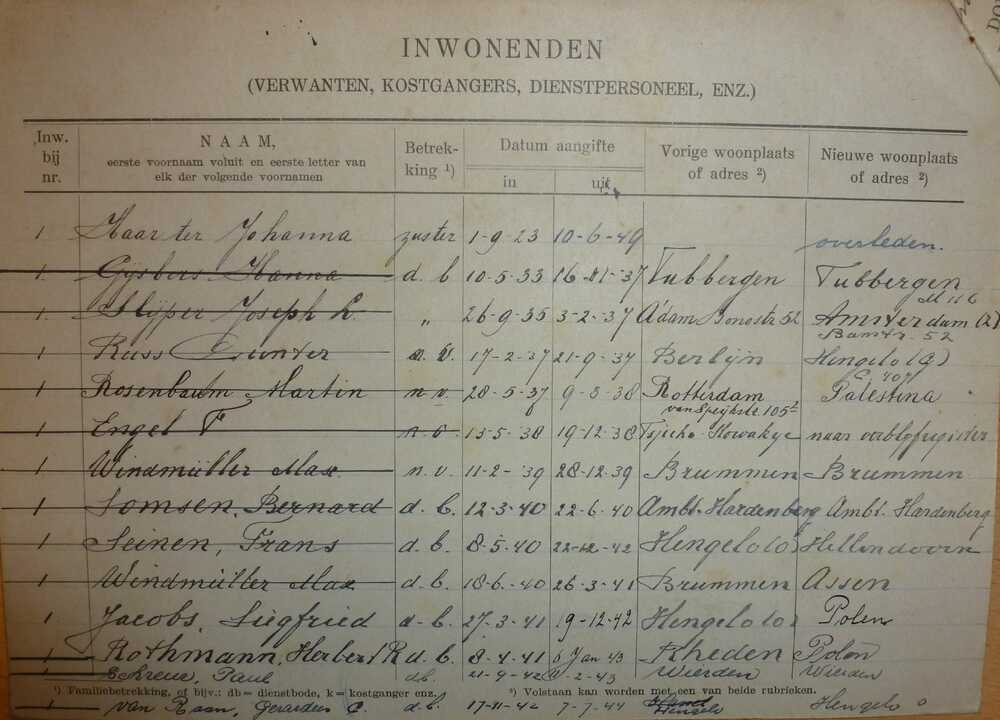 INWONENDEN
(VERWANTEN, KOSTGANGERS, DIENSTPERSONEEL, ENZ.)
Inw. bij nr. NAAM, eerste voornaam voluit en eerste letter van elk der volgende voornamen Betrekking ¹) Datum aangifte in uit Vorige woonplaats of adres ²) Nieuwe woonplaats of adres ²)
1 Haar ter Johanna zuster 1-9-23 10-6-49 overleden.
1 Gijsbers Hanna d. b 10-5-33 16-11-37 Tubbergen Tubbergen
1 Slijper Joseph L. „ 26-9-35 3-2-37 A'dam 52 Amsterdam (Z)
52
1 Russ Gunter n. v. 17-2-37 21-9-37 Berlijn Hengelo (G)
1 Rosenbaum Martin n. v. 28-5-37 9-3-38 Rotterdam van Speijkstr. 105 Palestina
1 Engel F n. v. 13-5-38 19-12-38 naar
1 Windmüller Max n. v. 11-2-'39 28-12-39 Brummen Brummen
1 Somsen, Bernard d. b. 12-3-40 22-6-40 Ambt. Hardenberg Ambt. Hardenberg
1 Seinen, Frans d. b. 8-5-40 22-12-42 Hengelo (o) Hellendoorn
1 Windmüller Max d. b. 18-6-40 26-3-41 Brummen Assen
1 Jacobs, Siegfried d-b. 27-3-41 19-12-42 Hengelo (o) Polen
1 Rothmann, Herbert R d. b. 8-4-41 Jan 43 Rheden Polen
Paul db. 21-9-42 -2-43 Wierden Wierden
¹) Familiebetrekking, of bijv.: db = dienstbode, k = kostganger enz. ²) Volstaan kan worden met een van beide rubrieken.
1 van Raan, Gerardus C. d.b 17-11-42 7-7-44 Hengelo Hengelo o